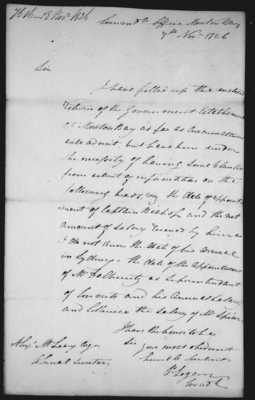 Commdts Office Moreton Bay
7th Novr 1826
Sir
I have filled up the enclosed
Return of the Government Establishment
at Moreton Bay as far as circumstances
will admit but have been under
the necessity of leaving some Blanks
from want of information on the
following heads, viz. the date of appoint
ment of Captain Bishop and the net
amount of Salary received by him as
I do not know the date of his arrival
in Sydney. the date of the appointment
of Mr as Superintendent
of Convicts and his Annual Salary,
and likewise the Salary of Mr Spicer.
I have the honor to be
Sir your most obedient
humble Servant
P. Logan
Comdt
Alexr McLeay Esqr
Colonial Secretary